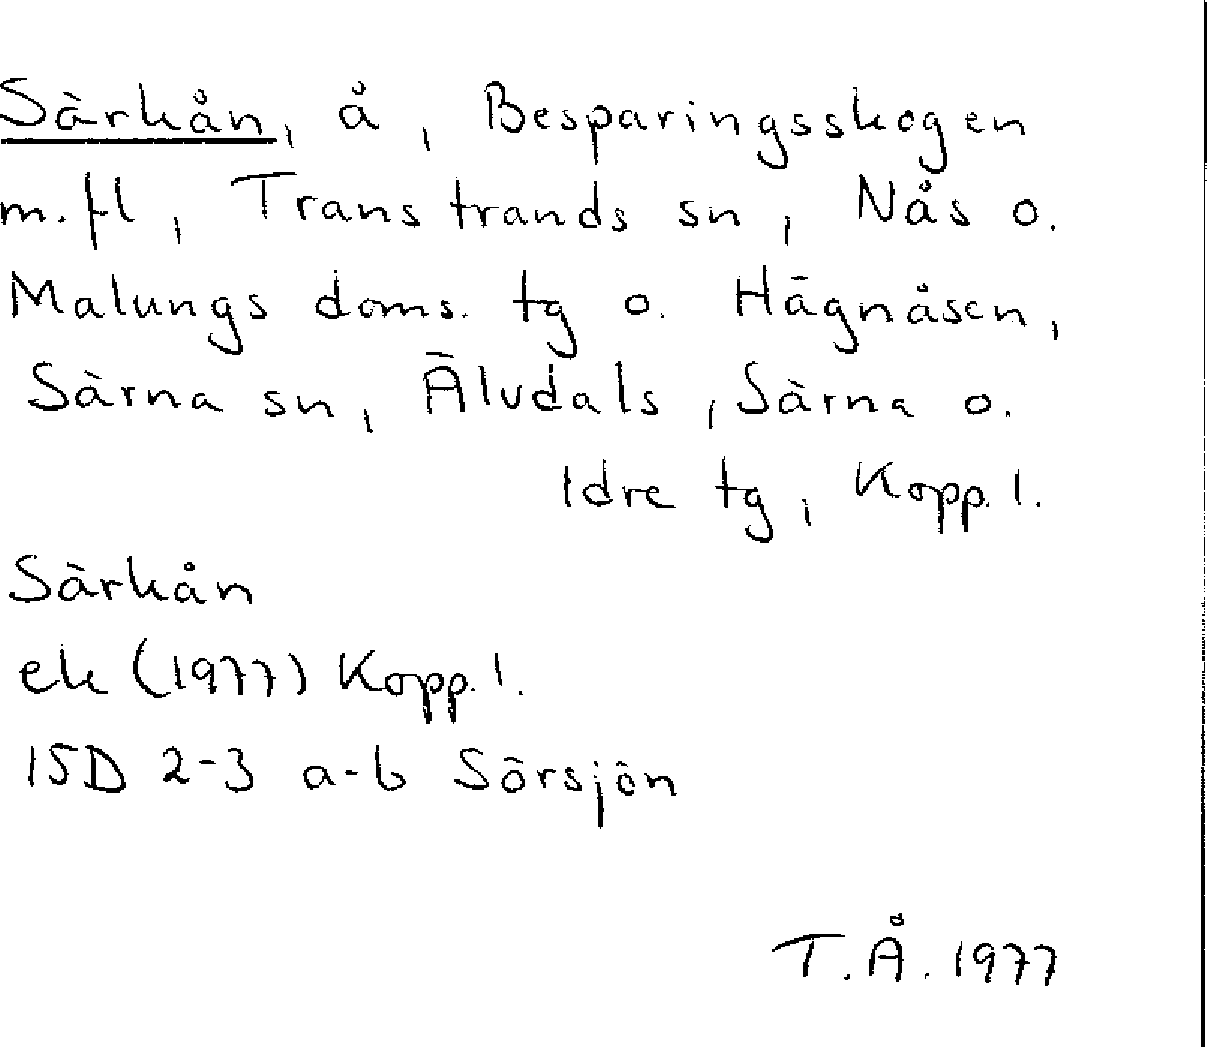 Särkån, å, Besparingsskogen
m.fl, Transtrands sn, Nås o.
Malungs doms. tg o. Hägnåsen,
Särna sn, Älvdals, Särna o.
Idre tg, Kopp. l.
Särkån
ek (1977) Kopp. l.
15D 2-3 a-b Sörsjön
T.Å. 1977